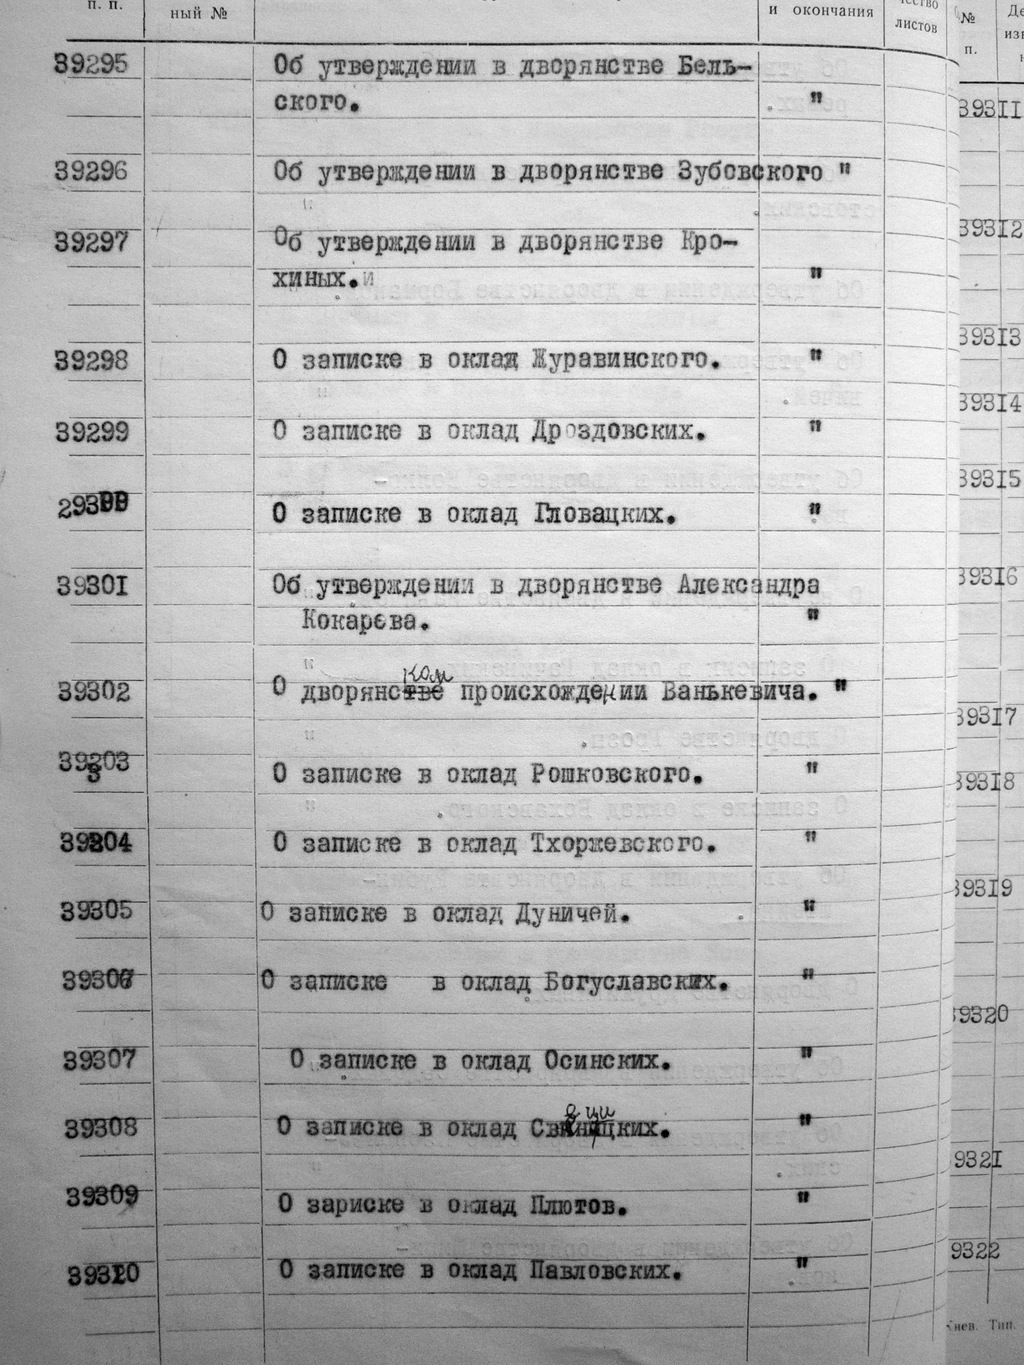 п. п.
ный №
и окончания
чество
листов
№
п.
39295 Об утверждении в дворянстве Бель-
ского. "
39296 Об утверждении в дворянстве Зубовского "
39297 Об утверждении в дворянстве Кро-
хиных.и "
39298 О записке в оклад Журавинского. "
39299 О записке в оклад Дроздовских. "
29300 О записке в оклад Гловацких. "
39301 Об утверждении в дворянстве Александра
Кокарева. "
ком
39302 О дворянстве происхождении Ванькевича. "
39303
3 О записке в оклад Рошковского. "
39304 О записке в оклад Тхоржевского. "
39305 О записке в оклад Дуничей. "
39306 О записке в оклад Богуславских. "
39307 О записке в оклад Осинских. "
39308 О записке в оклад ких. "
39309 О зариске в оклад Плютов. "
39310 О записке в оклад Павловских. "
39311
39312
39313
39314
39315
39316
39317
39318
39319
39320
9321
9322
Тип.